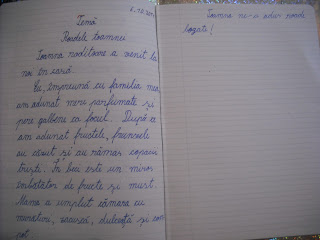 Temă
Roadele toamnei
Toamna roditoare a venit la
noi în țară.
Eu, împreună cu familia mea
am adunat mere parfumate și
pere galbene ca focul. După ce
am adunat fructele, frunzele
au căzut și au rămas copacii
triști. În beci este un miros
îmbătător de fructe și must.
Mama a umplut cămara cu
murături, zacuscă, dulceață și com
pot.
Toamna ne-a adus roade
bogate!